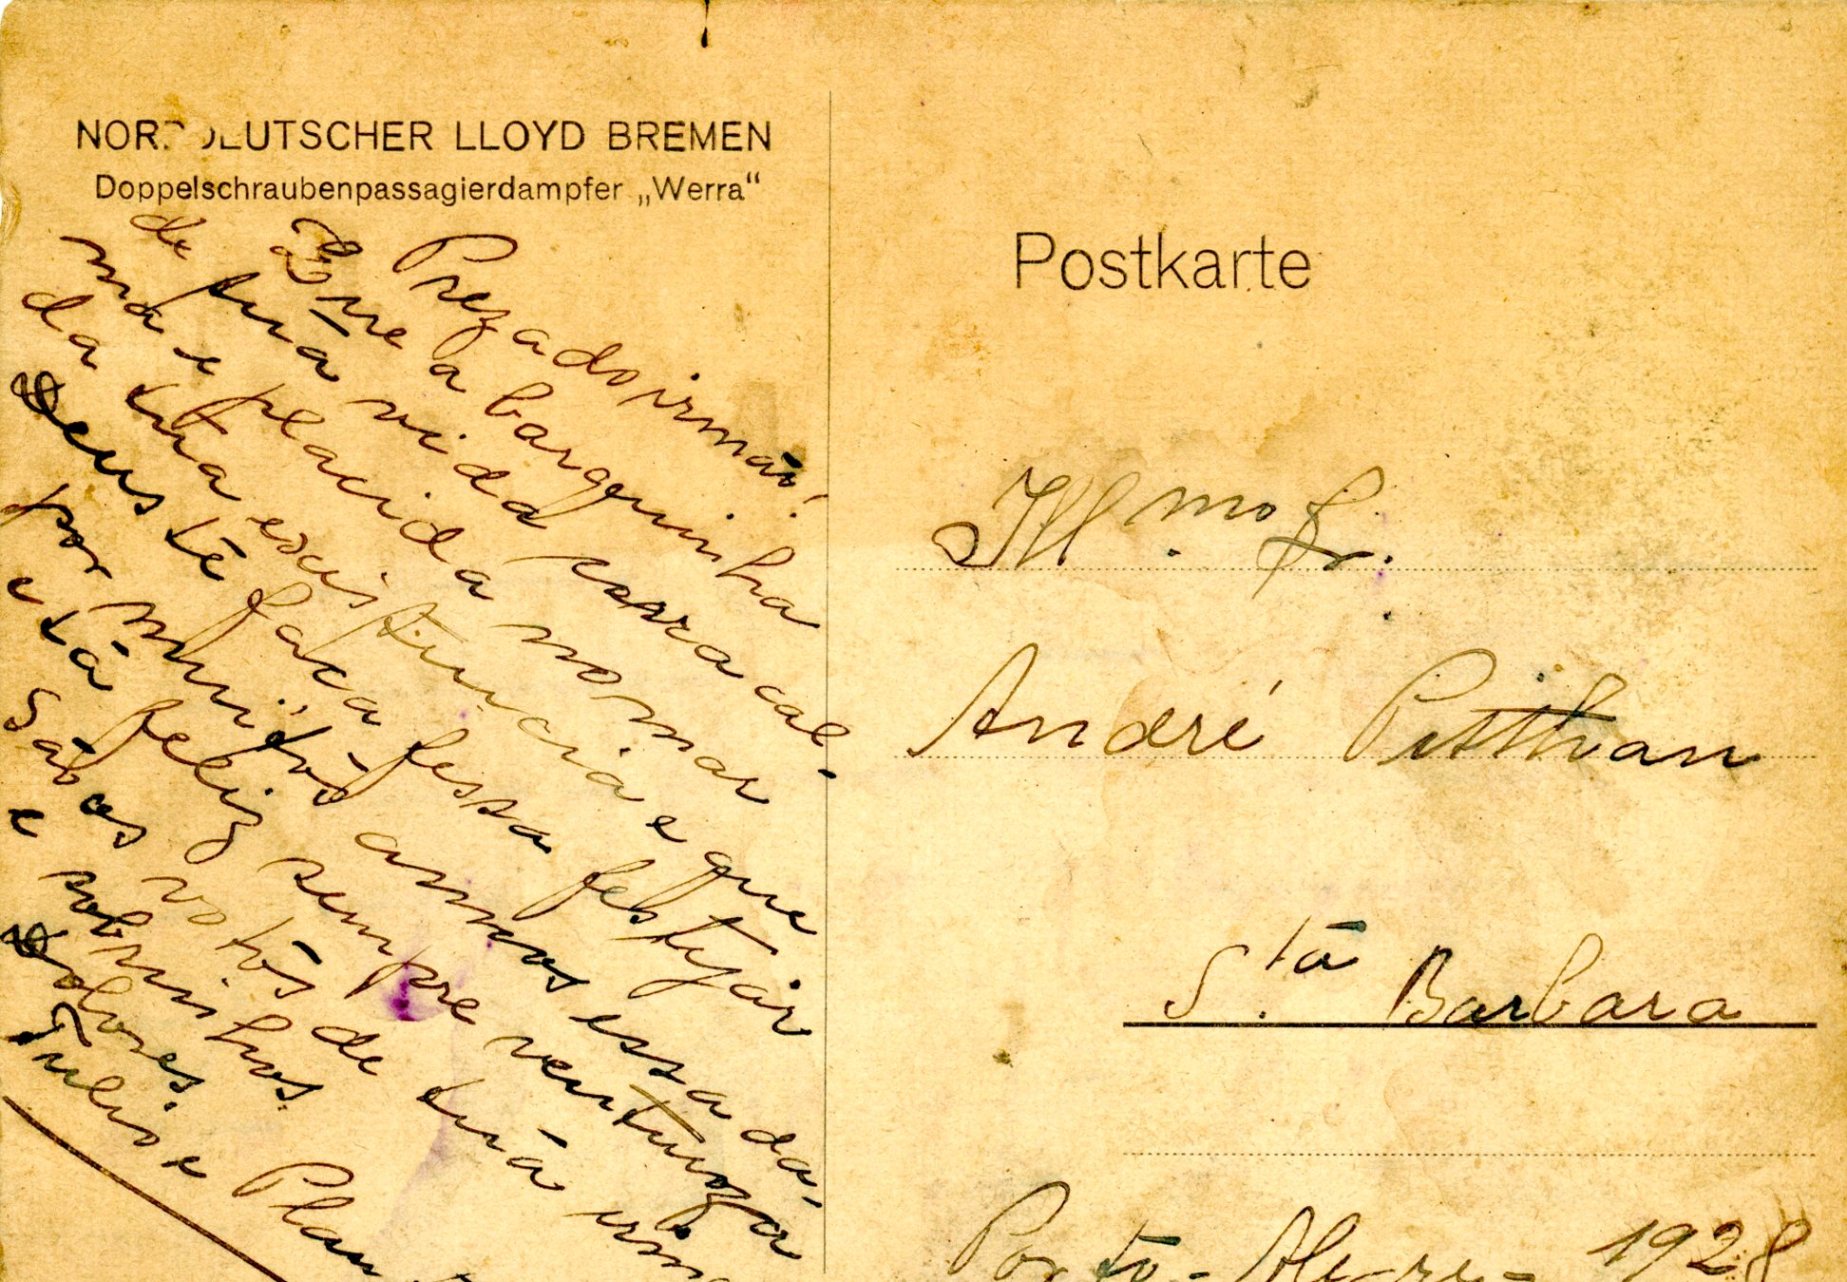 NORDDEUTSCHER LLOYD BREMEN
Doppelschraubenpassagierdampfer „Werra“
Prezado irmão!
Que a barquinha
de tuá vida corra cal-
ma e placida no mar
da tua existencia e que
Deus te faça festejar
por muitos annos essa da-
e tá feliz sempre venturoza
São os votos de tuá irmã
e sobrinhos.
Dolores.
Tulio e
Postkarte
Illmo Sr.
André Pitthan
S.tā Barbara
Porto-Alegre- 1928